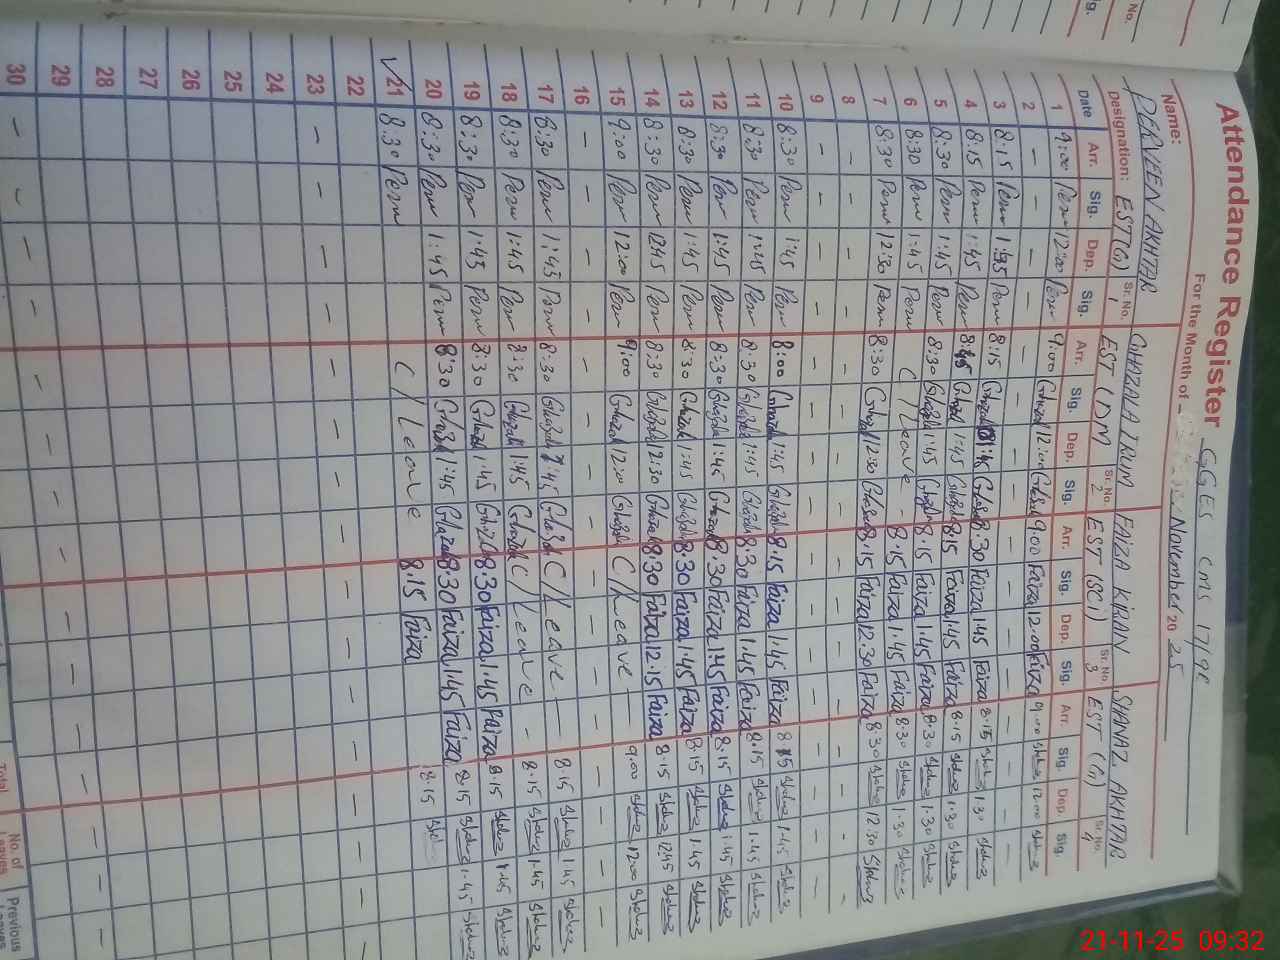 No.
Sig.
Attendance Register GGES CMS 1719R
For the Month of November 20 25
Name: PERVEEN AKHTAR GHAZALA IRUM FAIZA KIRAN SHANAZ AKHTAR
Designation: EST(G) Sr. No. 1 EST (DM) Sr. No. 2 EST (SCi) Sr. No. 3 EST (G) Sr. No. 4
Date Arr. Sig. Dep. Sig. Arr. Sig. Dep. Sig. Arr. Sig. Dep. Sig. Arr. Sig. Dep. Sig.
1 9:00 Perv 12:00 Perv 9:00 Ghazal 12:00 Ghazal 9:00 Faiza 12:00 Faiza 9:00 Shahnaz 12:00 Shahnaz
2 – – – – – – – – – –
3 8:15 Perv 1:35 Perv 8:15 Ghazal 1:45 Ghazal 8:30 Faiza 1:45 Faiza 8:15 Shahnaz 1:30 Shahnaz
4 8:15 Perv 1:45 Perv 8:15 Ghazal 1:45 Ghazal 8:15 Faiza 1:45 Faiza 8:15 Shahnaz 1:30 Shahnaz
5 8:30 Perv 1:45 Perv 8:30 Ghazal 1:45 Ghazal 8:15 Faiza 1:45 Faiza 8:30 Shahnaz 1:30 Shahnaz
6 8:30 Perv 1:45 Perv C/Leave - 8:15 Faiza 1:45 Faiza 8:30 Shahnaz 1:30 Shahnaz
7 8:30 Perv 12:30 Perv 8:30 Ghazal 12:30 Ghazal 8:15 Faiza 12:30 Faiza 8:30 Shahnaz 12:30 Shahnaz
8 – – – – – – – – – –
9 – – – – – – – – – –
10 8:30 Perv 1:45 Perv 8:00 Ghazal 1:45 Ghazal 8:15 Faiza 1:45 Faiza 8:15 Shahnaz 1:45 Shahnaz
11 8:30 Perv 1:45 Perv 8:30 Ghazal 1:45 Ghazal 8:30 Faiza 1:45 Faiza 8:15 Shahnaz 1:45 Shahnaz
12 8:30 Perv 1:45 Perv 8:30 Ghazal 1:45 Ghazal 8:30 Faiza 1:45 Faiza 8:15 Shahnaz 1:45 Shahnaz
13 8:30 Perv 1:45 Perv 8:30 Ghazal 1:45 Ghazal 8:30 Faiza 1:45 Faiza 8:15 Shahnaz 1:45 Shahnaz
14 8:30 Perv 12:45 Perv 8:30 Ghazal 12:30 Ghazal 8:30 Faiza 12:15 Faiza 8:15 Shahnaz 12:45 Shahnaz
15 9:00 Perv 12:00 Perv 9:00 Ghazal 12:00 Ghazal C/Leave — 9:00 Shahnaz 12:00 Shahnaz
16 – – – – – – – – – –
17 8:30 Perv 1:45 Perv 8:30 Ghazal 1:45 Ghazal C/Leave — 8:15 Shahnaz 1:45 Shahnaz
18 8:30 Perv 1:45 Perv 8:30 Ghazal 1:45 Ghazal C/Leave - 8:15 Shahnaz 1:45 Shahnaz
19 8:30 Perv 1:45 Perv 8:30 Ghazal 1:45 Ghazal 8:30 Faiza 1:45 Faiza 8:15 Shahnaz 1:45 Shahnaz
20 8:30 Perv 1:45 Perv 8:30 Ghazal 1:45 Ghazal 8:30 Faiza 1:45 Faiza 8:15 Shahnaz 1:45 Shahnaz
21 8:30 Perv C/Leave 8:15 Faiza 8:15 Shahnaz
22
23 – – – – – – – – – –
24
25
26
27
28
29
30 – – – – – – – – – –
Total
No. of Leaves
Previous Leaves
21-11-25 09:32